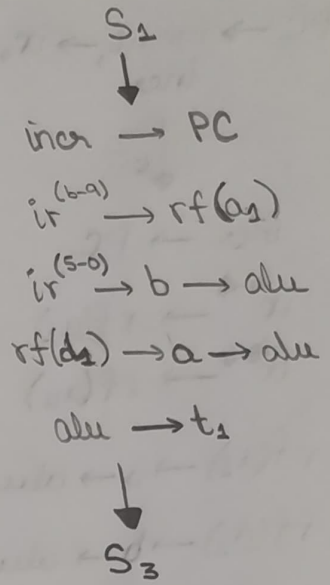 S1
↓
incr → PC
ir(6-9) → rf(a1)
ir(5-0) → b → alu
rf(d1) → a → alu
alu → t1
↓
S3